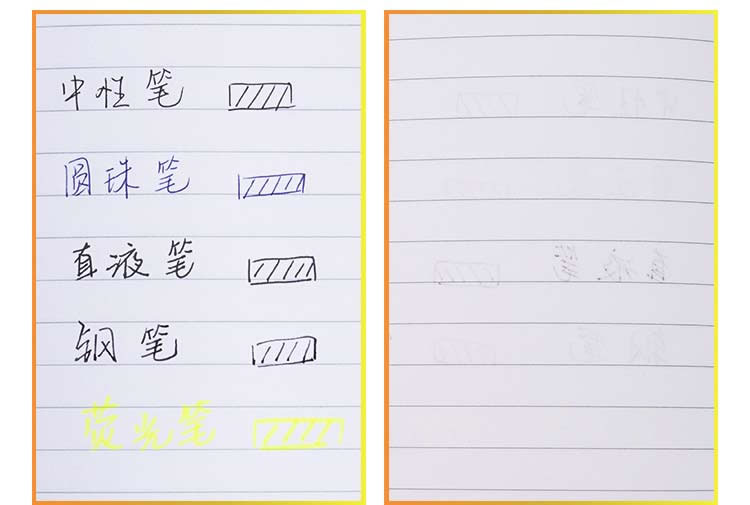 中性笔
圆珠笔
直液笔
钢笔
荧光笔